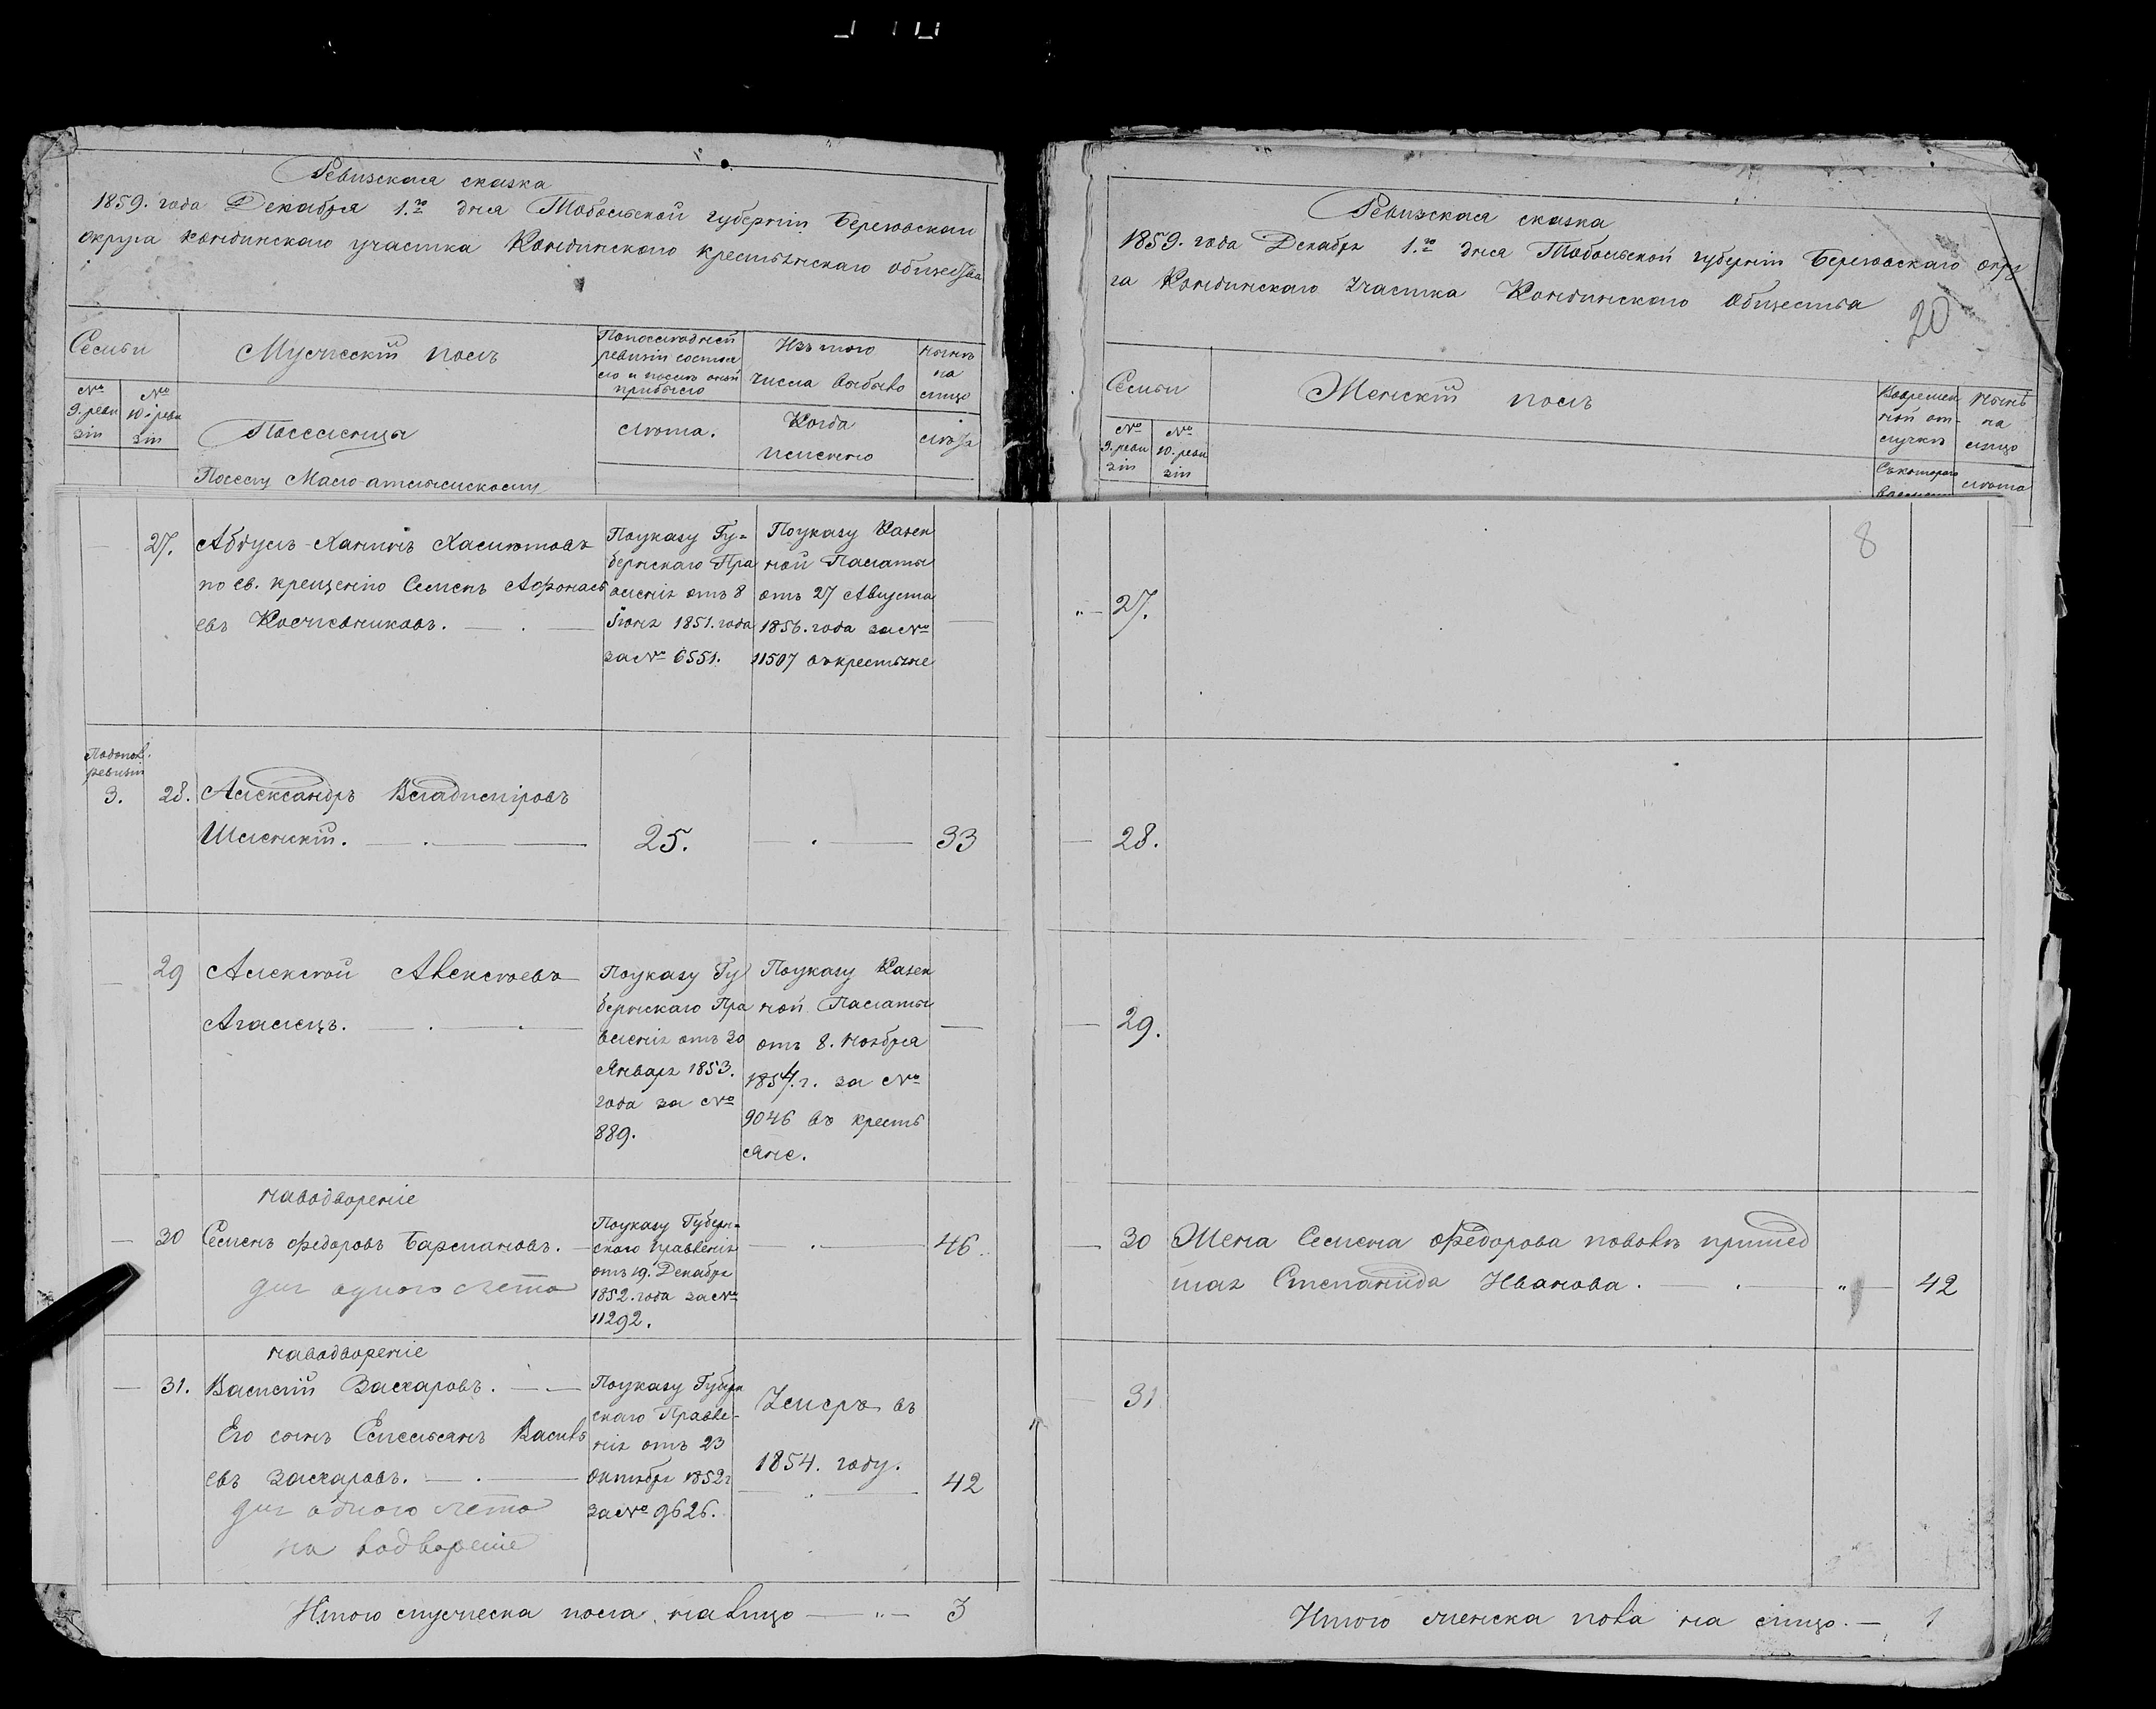 Ревизская сказка
1859. года Декабря 1.го дня Тобольской губерніи Березовскаго
округа Кондинскаго участка Кондинскаго крестьянскаго общества
Семьи
Мужескій полъ
По последней
ревизіи состоя
ло и после оной
прибыло
Изъ того
числа выбыло
Ныне
на
лицо
№
9. реви
зіи
№
10. реви
зіи
Поселенцы
лета.
Когда
именно
лета
Поселу Мало-атлымскому
27.
Абдулъ-Халинъ Халитовъ
по св. крещенію Семенъ Афонась
евъ Кочевниковъ.
По указу Гу=
бернскаго Пра
вленія отъ 8
Іюня 1851. года
за № 6551.
По указу Казен
ной Палаты
отъ 27 Августа
1856. года за №
11507 въ крестьяне
ревизіи
3.
28.
Александръ Владиміровъ
Шленскій.
25.
33
29
Алексей Алексеевъ
Агалецъ.
По указу Гу
бернскаго Пра
вленія отъ 30
Января 1853.
года за №
889.
По указу Казен
ной Палаты
отъ 8. Ноября
1854. г. за №
9046 въ кресть
яне.
на водвореніе
30
Семенъ Федоровъ Бармановъ.
для одного счета
По указу Губерн=
скаго Правленія
отъ 19. Декабря
1852. года за №
11292.
46
на водвореніе
31.
Василій Захаровъ.
Его сынъ Емельянъ Василь
евъ Захаровъ.
для одного счета
на водвореніе
По указу Губерн
скаго Правле-
нія отъ 23
Октября 1852 г
за № 9626.
Умеръ въ
1854. году.
42
Итого мужеска пола на лицо 3
Ревизская сказка
1859. года Декабря 1.го дня Тобольской губерніи Березовскаго окру
га Кондинскаго Участка Кондинскаго Общества
20
Семьи
Женскій полъ
Во времен
ной от-
лучке
Ныне
на
лицо
№
9. реви
зіи
№
10. реви
зіи
Съ котораго
времени
лета
8
27.
28.
29.
30
Жена Семена Федорова по воле пришед
шая Степанида Иванова.
42
31
Итого женска пола на лицо. 1